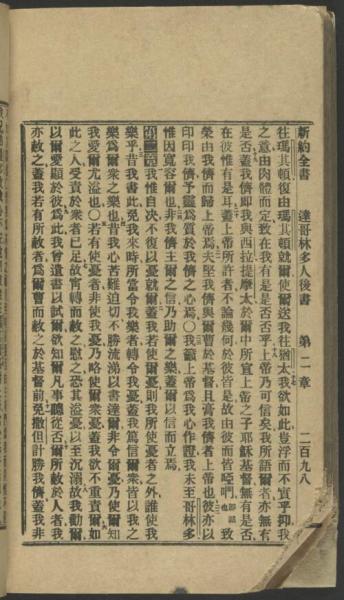 新約全書　達哥林多人後書　第二章　二百九八
往瑪其頓復由瑪其頓就爾使爾送我往猶太我欲如此豈浮而不實乎抑我
之意由肉體而定致在我有是是否否乎上帝乃可信矣我所語爾者亦無有
是否蓋我儕即我與西拉提摩太於爾中所宣上帝之子耶穌基督無有是否
在彼惟有是耳蓋上帝所許者不論幾何於彼皆是故由彼而皆啞們即誠也致
榮由我儕而歸上帝焉夫堅我儕與爾曹於基督且膏我儕者上帝也彼亦以
印印我儕予靈爲質於我儕之心焉○我籲上帝爲我心作證我未至哥林多
惟因寬容爾也非我儕主爾之信乃助爾之樂蓋爾以信而立焉
第二章我惟自决不復以憂就爾蓋我若使爾憂則我所使憂者之外誰使我
樂乎昔我書此免我來時所當令我樂者轉使我憂我篤信爾衆皆以我之
樂爲爾衆之樂也昔我心苦難迫切不勝流涕以書達爾非令爾憂乃使爾知
我愛爾尤溢也○若有使憂者非使我憂乃略使爾衆憂蓋我欲不重責如
此之人受責於衆者已足故寧轉而赦之慰之恐其溢憂以至沉溺故我勸爾
以爾愛顯於彼爲此我曾遺書以試爾欲知爾凡事聽從否爾所赦於人者我
亦赦之蓋我若有所赦者爲爾曹而赦之於基督前免撒但計勝我儕蓋我非